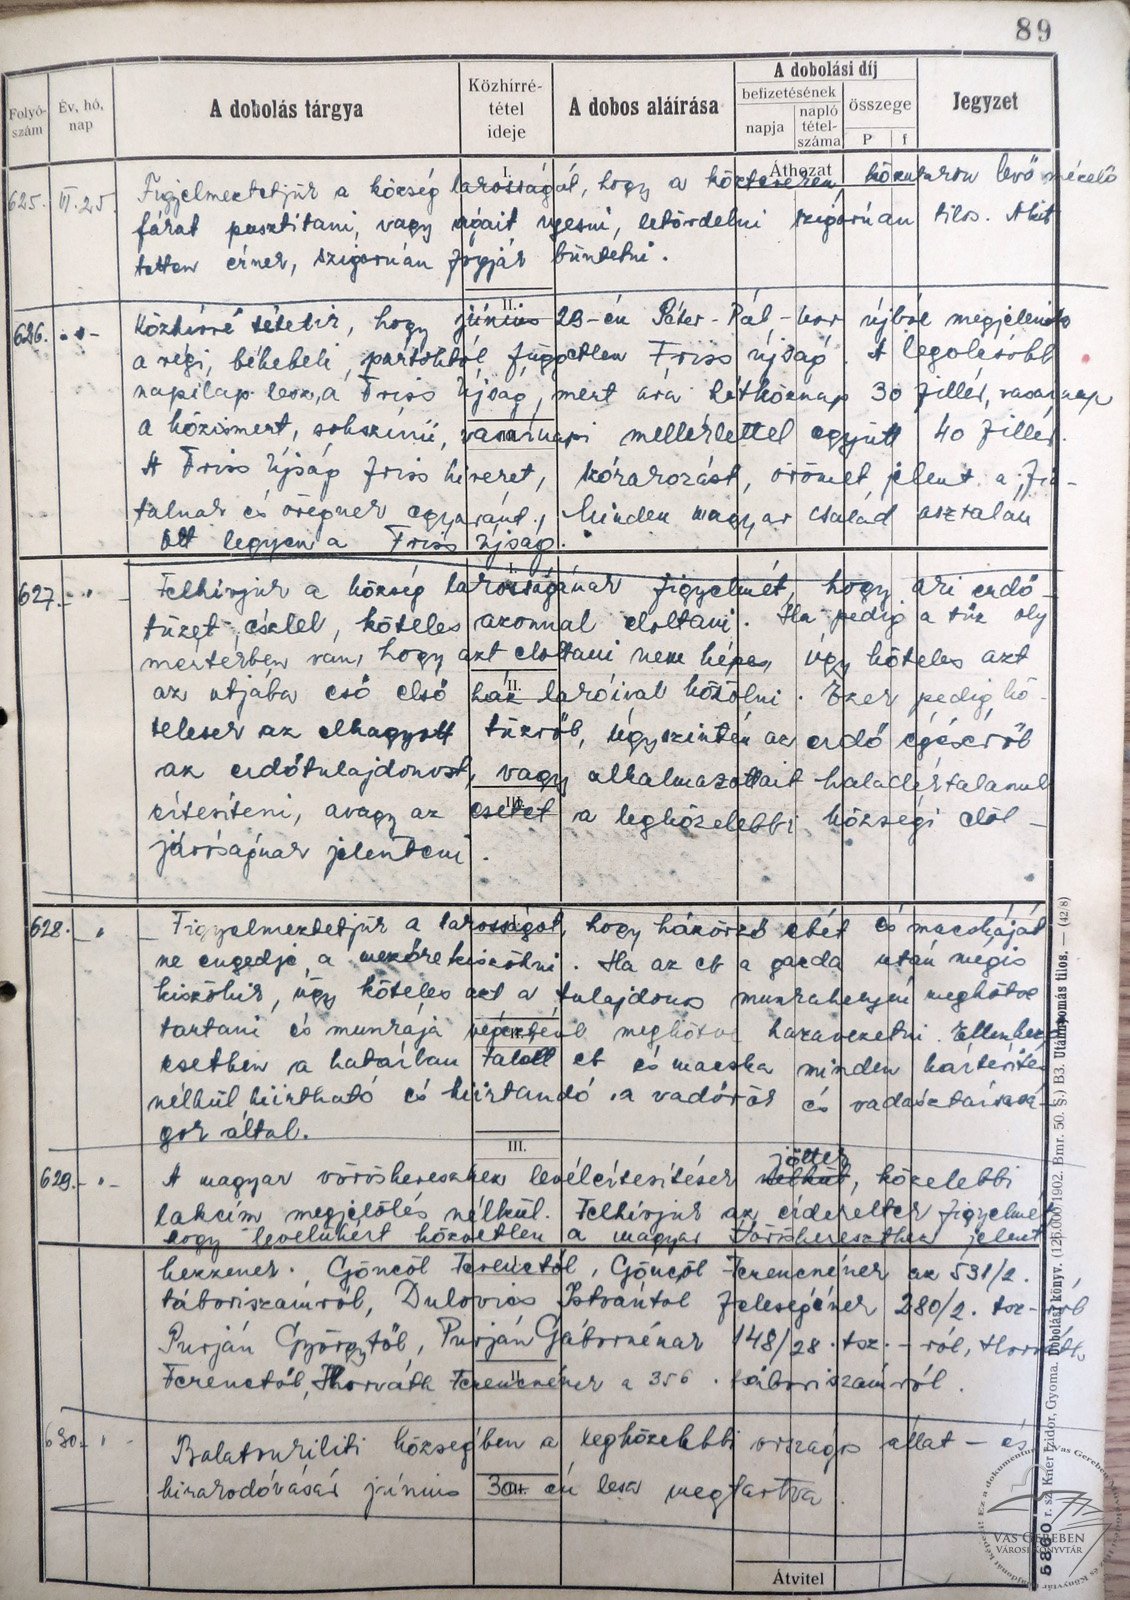 89
Folyó-szám
Év, hó, nap
A dobolás tárgya
Közhírré-tétel ideje
A dobos aláírása
A dobolási díj
befizetésének
napja
napló tétel-száma
összege
P f
Jegyzet
Áthozat
I.
625. VI. 25 Figyelmeztetjük a község lakosságát, hogy a köztereken, közutakon levő
fákat pusztítani, vagy ágait nyesni, letördelni szigorúan tilos. Akit
tetten érnek, szigorúan fogják büntetni.
II.
626. -"- Közhírré tétetik, hogy június 29-én Péter-Pál-kor újból megjelenik
a régi, békebeli, pártoktól független Friss újság. A legolcsóbb
napilap lesz, a Friss Újság, mert ára hétköznap 30 fillér, vasárnap
a közismert, sokszínű, vasárnapi melléklettel együtt 40 fillér.
A Friss Újság friss híreket, szórakozást, örömet jelent a fia-
talnak és öregnek egyaránt. Minden magyar család asztalán
ott legyen a Friss Újság.
I.
627. -"- Felhívjuk a község lakosságának figyelmét, hogy aki erdő-
tüzet észlel, köteles azonnal eloltani. Ha pedig a tűz oly
mértékben van, hogy azt eloltani nem képes, úgy köteles azt
az útjába eső első ház lakóival közölni. Ezek pedig kö-
II.
telesek az elhagyott tűzről, úgyszintén az erdő égéséről
az erdőtulajdonost, vagy alkalmazottait haladéktalanul
értesíteni, avagy az esetet a legközelebbi községi elöl-
III.
járóságnak jelenteni.
628. -"- Figyelmeztetjük a lakosságot, hogy házőrző ebét és macskáját
I.
ne engedje a mezőre kiszökni. Ha az eb a gazda után mégis
kiszökik, úgy köteles azt a tulajdonos munkahelyén megkötve
tartani és munkája végeztével megkötve hazavezetni. Ellenkező
II.
esetben a határban talált eb és macska minden kártérítés
nélkül kiirtható és kiirtandó a vadőrök és vadásztársasá-
gok által.
III.
629. -"- A magyar vöröskereszthez levélértesítések jöttek, közelebbi
lakcím megjelölés nélkül. Felhívjuk az érdekeltek figyelmét,
hogy levelükért közvetlen a magyar Vöröskereszthez jelent
kezzenek. Göncöl Ferenctől, Göncöl Ferencnének az 531/2.
táboriszámról, Dulovics Istvántól feleségének 280/2. tsz-ról
Purján Györgytől, Purján Gábornénak 148/28. tsz.-ról, Horváth
Ferenctől, Horváth Ferencnének a 356. táboriszámról.
II.
630. -"- Balatonkiliti községben a legközelebbi országos állat- és
kirakodóvásár június 30-án lesz megtartva.
III.
Átvitel
5860 r. sz. Kner Izidor, Gyoma. Dobolási könyv. (126.000/1902. Bmr. 50. §.) B3. Utánnyomás tilos. — (42/8)
VAS GEREBEN
VÁROSI KÖNYVTÁR